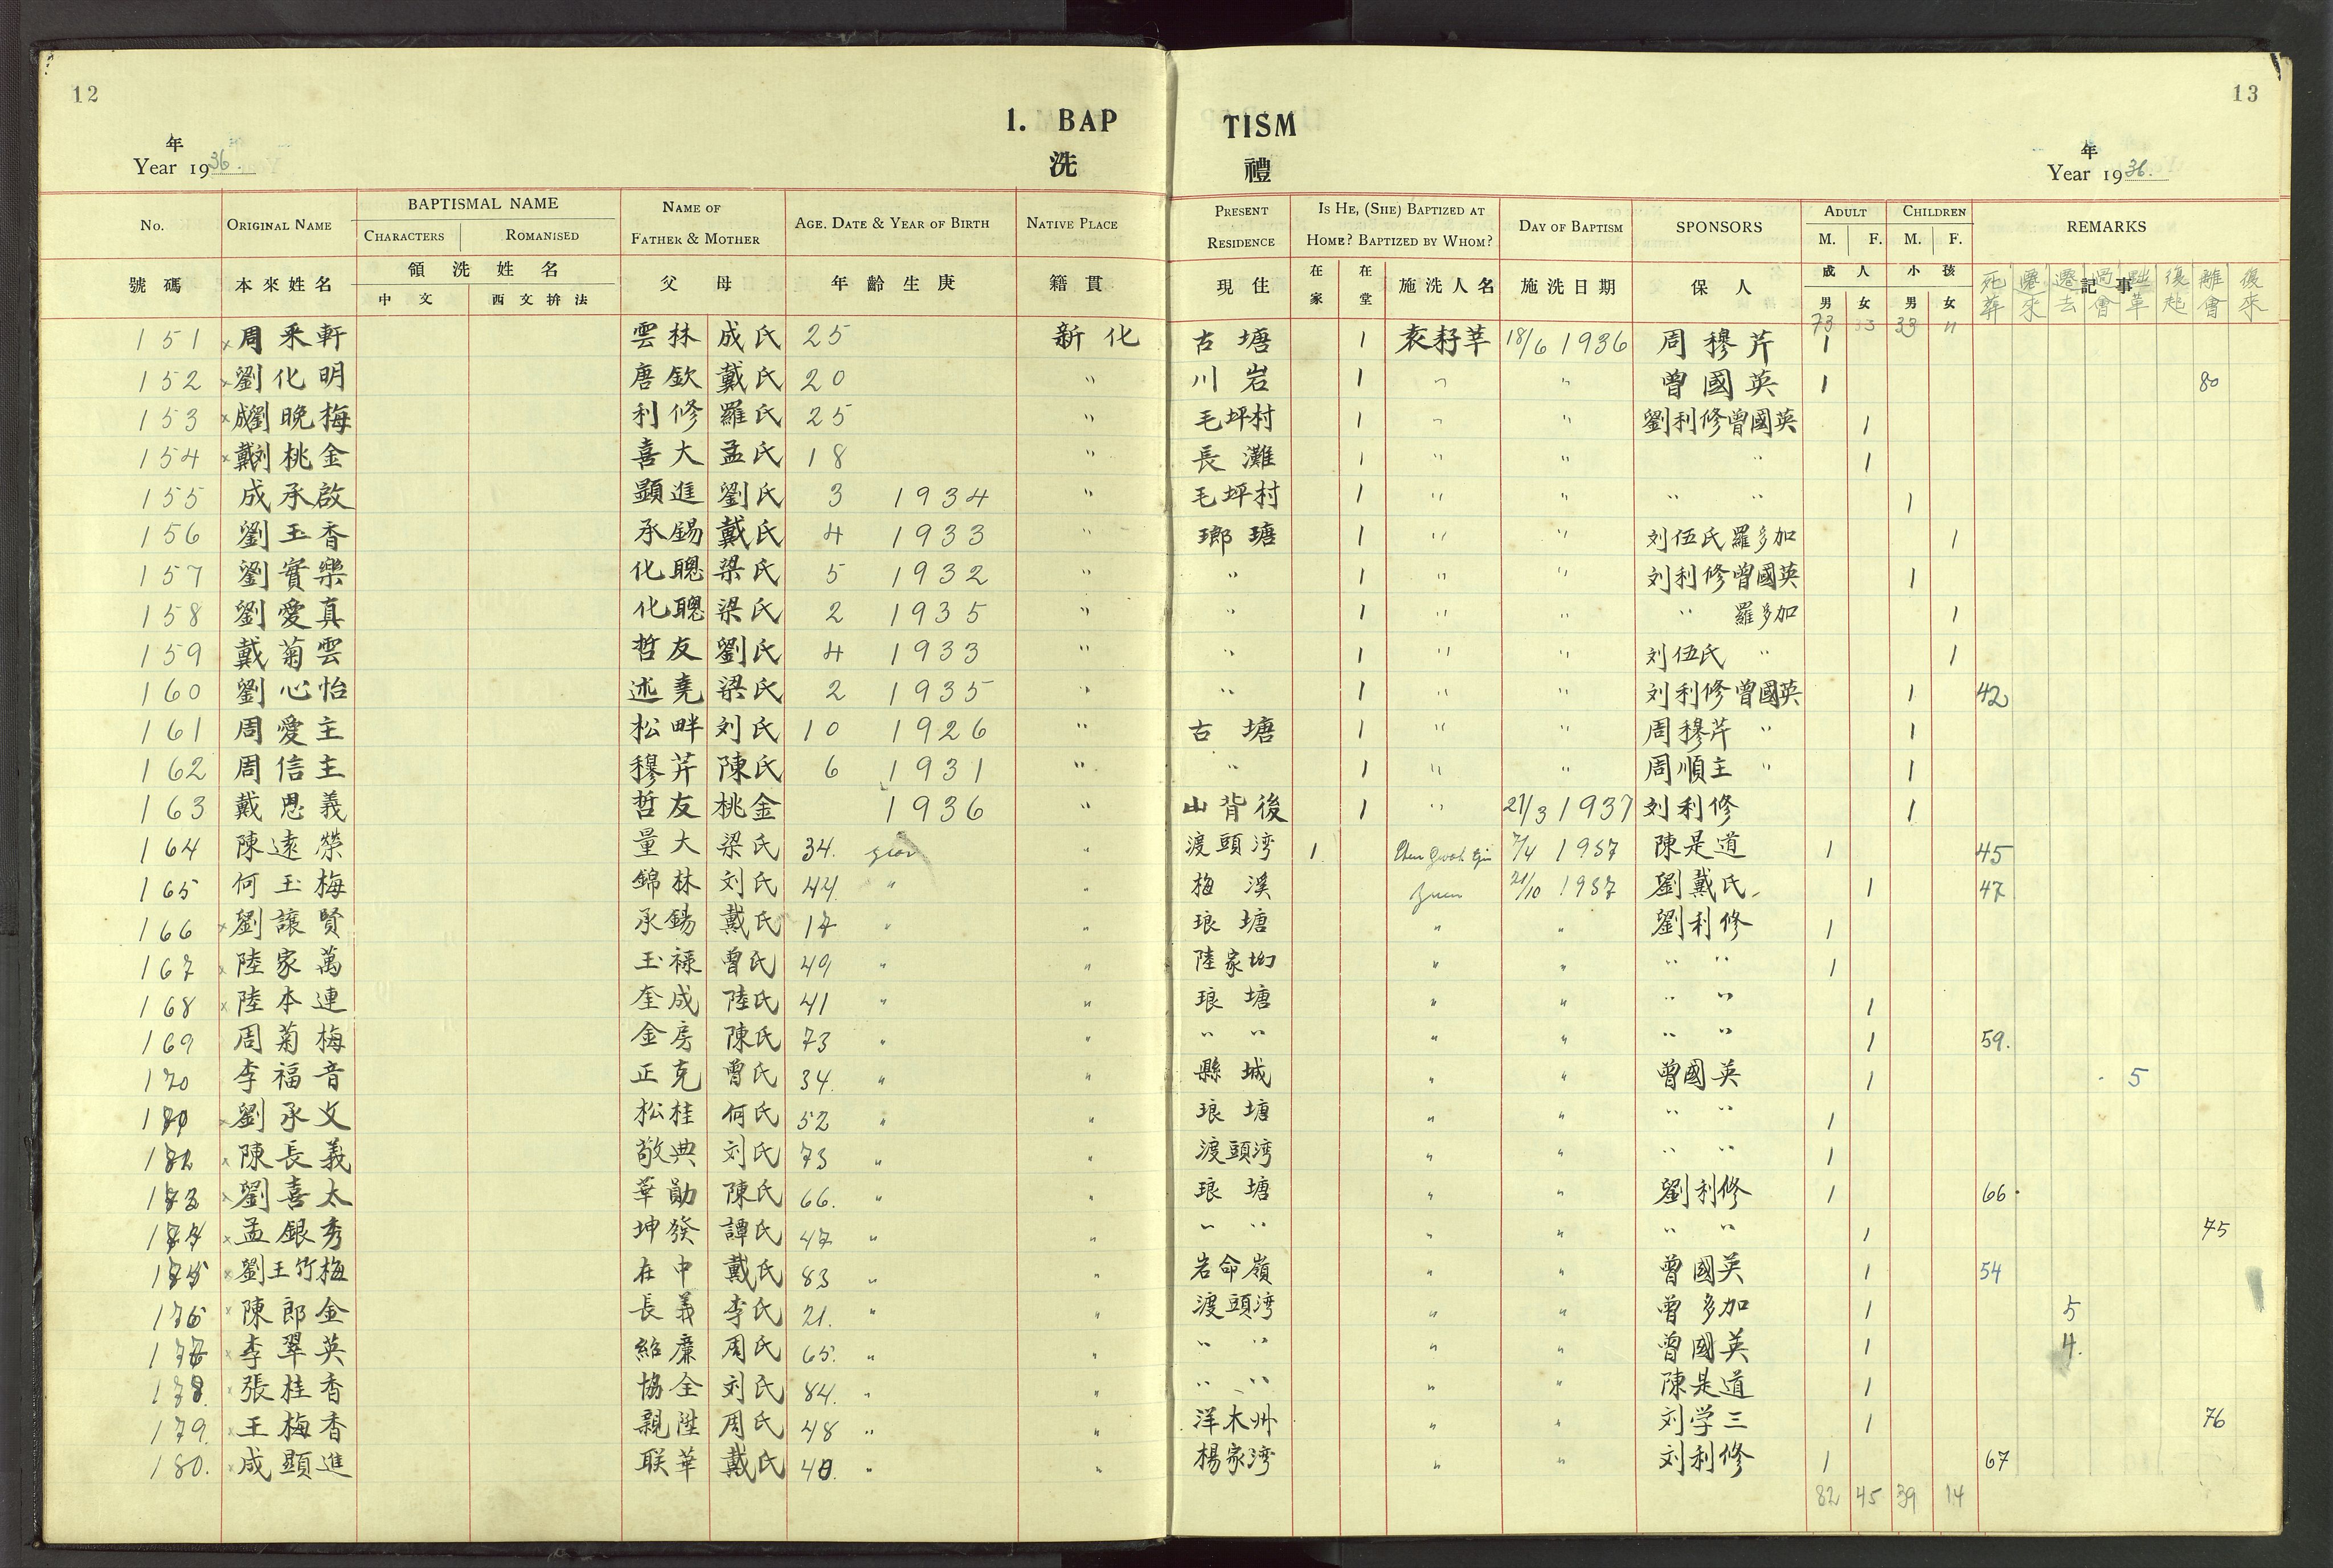 12
13
1. BAP TISM
洗 禮
年
Year 1936.
年
Year 1936.
No. ORIGINAL NAME BAPTISMAL NAME NAME OF FATHER & MOTHER AGE. DATE & YEAR OF BIRTH NATIVE PLACE PRESENT RESIDENCE IS HE, (SHE) BAPTIZED AT HOME? BAPTIZED BY WHOM? DAY OF BAPTISM SPONSORS ADULT CHILDREN REMARKS
CHARACTERS ROMANISED M. F. M. F.
號碼 本來姓名 領洗姓名 父母 年齡生庚 籍貫 現住 在家 在堂 施洗人名 施洗日期 保人 成人 小孩 記事
中文 西文拚法 男 女 男 女 死葬 遷來 遷去 過會 黜革 復起 離會 復來
73 33 33 11
151 x 周釆軒 雲林 成氏 25 新化 古塘 1 袁籽莘 18/6 1936 周穆芹 1
152 x 劉化明 唐欽 戴氏 20 " 川岩 1 " " 曾國英 1 80
153 x 成劉晚梅 利修 羅氏 25 " 毛坪村 1 " " 劉利修曾國英 1
154 x 戴刘桃金 喜大 孟氏 18 " 長灘 1 " " " 1
155 成承啟 顯進 劉氏 3 1934 " 毛坪村 1 " " " " 1
156 劉玉香 承錫 戴氏 4 1933 " 瑯瑭 1 " " 刘伍氏羅多加 1
157 劉實樂 化聰 梁氏 5 1932 " " 1 " " 刘利修曾國英 1
158 劉愛真 化聰 梁氏 2 1935 " " 1 " " " 羅多加 1
159 戴菊雲 哲友 劉氏 4 1933 " " 1 " " 刘伍氏 " 1
160 劉心怡 述堯 梁氏 2 1935 " " 1 " " 刘利修曾國英 1 42
161 周愛主 松畔 刘氏 10 1926 " 古塘 1 " " 周穆芹 " 1
162 周信主 穆芹 陳氏 6 1931 " " 1 " " 周順主 " 1
163 戴恩義 哲友 桃金 1936 " 山背後 1 " 21/3 1937 刘利修 1
164 陳遠榮 量大 梁氏 34. " 渡頭湾 1 7/4 1937 陳是道 1 45
165 何玉梅 錦林 刘氏 44. " " 梅溪 21/10 1937 劉戴氏 1 47
166 x 劉讓賢 承錫 戴氏 17 " " 琅塘 " " 劉利修 1
167 x 陸家萬 玉禄 曾氏 49 " " 陸家坳 " " " " 1
168 x 陸本連 奎成 陸氏 41 " " 琅塘 " " " " 1
169 周菊梅 金房 陳氏 73 " " " " " " " " 1 59.
170 李福音 正克 曾氏 34. " " 縣城 " " 曾國英 1 5
x 劉承文 松桂 何氏 52 " " 琅塘 " " " " 1
x 陳長義 敬典 刘氏 73 " " 渡頭湾 " " " " 1
x 劉喜太 華勛 陳氏 66. " " 琅塘 " " 劉利修 1 66.
x 孟銀秀 坤發 譚氏 47 " " " " " " " " 1 75
x 劉王竹梅 在中 戴氏 83 " " 岩命嶺 " " 曾國英 1 54
176 x 陳郎金 長義 李氏 21. " " 渡頭湾 " " 曾多加 1 5
177 x 李翠英 紹廉 周氏 65. " " " " " " 曾國英 1 4.
178. x 張桂香 協全 刘氏 84. " " " " " " 陳是道 1
179. x 王梅香 親陞 周氏 48 " " 洋木州 " " 刘学三 1 76
180. x 成顯進 联華 戴氏 40. " " 楊家湾 " " 刘利修 1 67
82 45 39 14